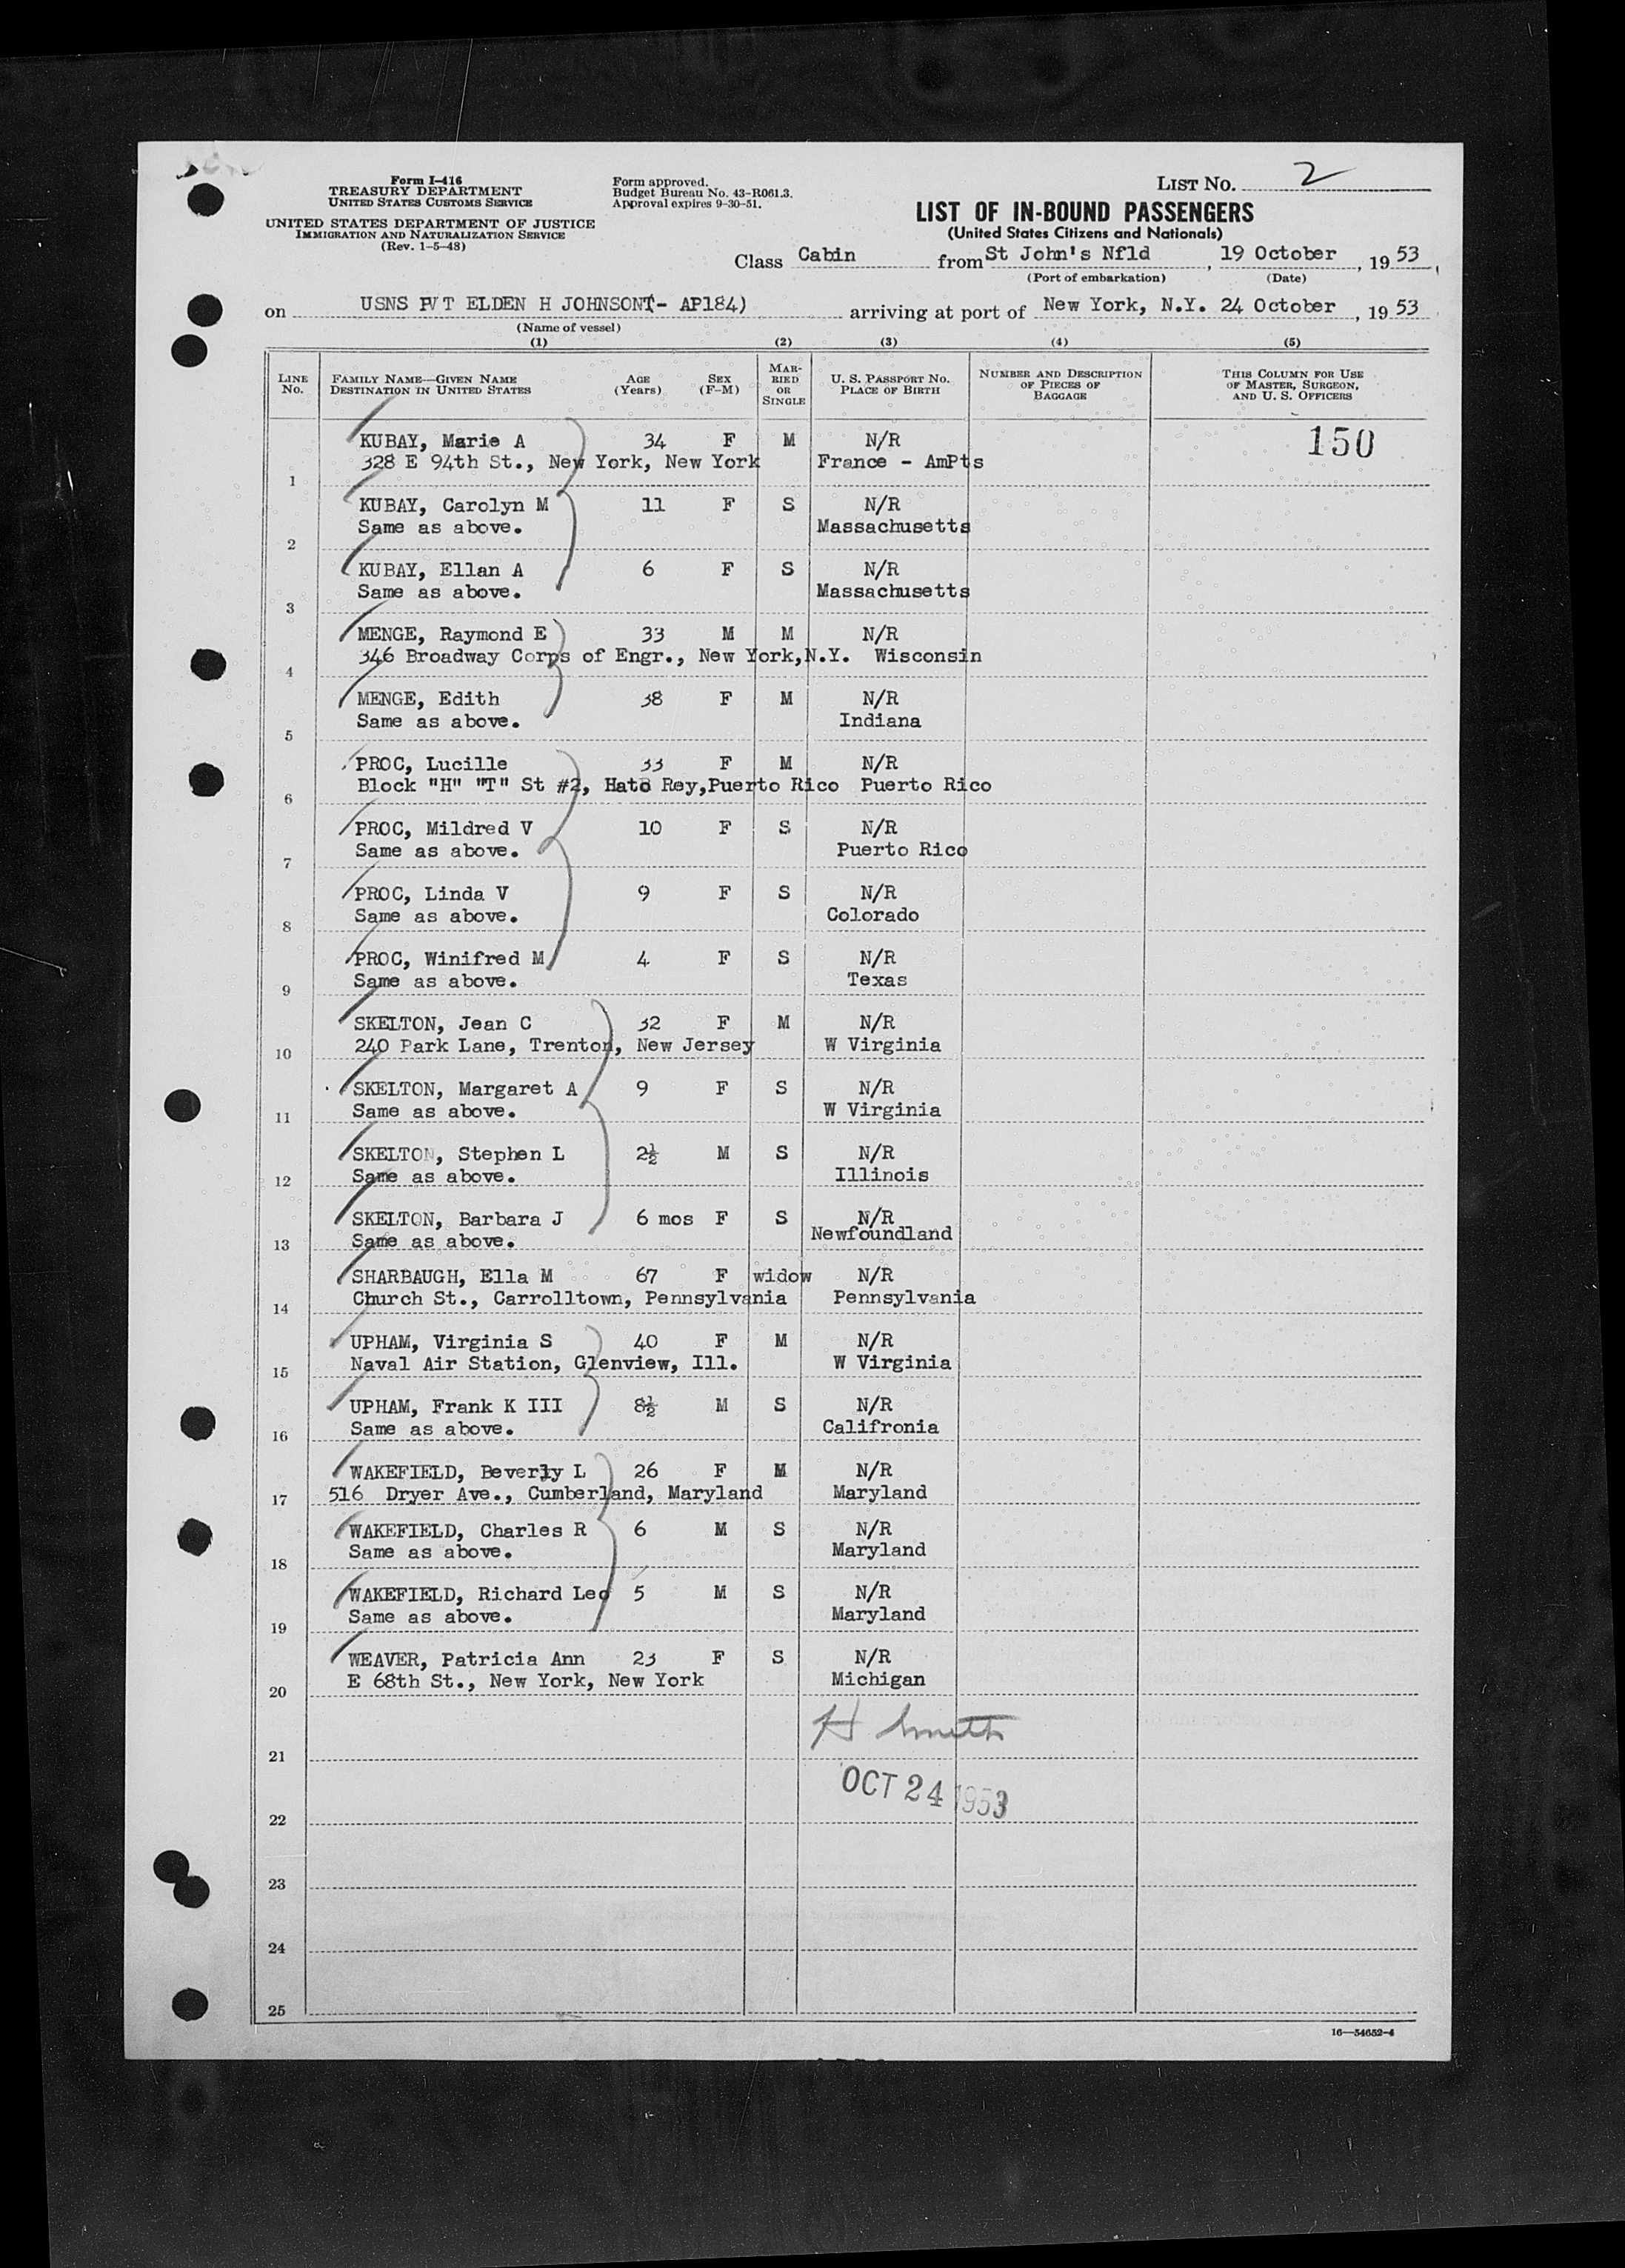 Form I-416
TREASURY DEPARTMENT
UNITED STATES CUSTOMS SERVICE
UNITED STATES DEPARTMENT OF JUSTICE
IMMIGRATION AND NATURALIZATION SERVICE
(Rev. 1-5-48)
Form approved.
Budget Bureau No. 43-R061.3.
Approval expires 9-30-51.
LIST NO. 2
LIST OF IN-BOUND PASSENGERS
(United States Citizens and Nationals)
Class Cabin from St John's Nfld, 19 October, 1953,
(Port of embarkation) (Date)
on USNS PVT ELDEN H JOHNSON(- AP184) arriving at port of New York, N.Y. 24 October, 1953
(Name of vessel)
(1) (2) (3) (4) (5)
LINE NO. FAMILY NAME—GIVEN NAME DESTINATION IN UNITED STATES AGE (Years) SEX (F-M) MARRIED OR SINGLE U. S. PASSPORT NO. PLACE OF BIRTH NUMBER AND DESCRIPTION OF PIECES OF BAGGAGE THIS COLUMN FOR USE OF MASTER, SURGEON, AND U. S. OFFICERS
KUBAY, Marie A 34 F M N/R 150
1 328 E 94th St., New York, New York France - AmPts
KUBAY, Carolyn M 11 F S N/R
2 Same as above. Massachusetts
KUBAY, Ellan A 6 F S N/R
3 Same as above. Massachusetts
MENGE, Raymond E 33 M M N/R
4 346 Broadway Corps of Engr., New York, N.Y. Wisconsin
MENGE, Edith 38 F M N/R
5 Same as above. Indiana
PROC, Lucille 33 F M N/R
6 Block "H" "T" St #2, Hato Rey, Puerto Rico Puerto Rico
PROC, Mildred V 10 F S N/R
7 Same as above. Puerto Rico
PROC, Linda V 9 F S N/R
8 Same as above. Colorado
PROC, Winifred M 4 F S N/R
9 Same as above. Texas
SKELTON, Jean C 32 F M N/R
10 240 Park Lane, Trenton, New Jersey W Virginia
SKELTON, Margaret A 9 F S N/R
11 Same as above. W Virginia
SKELTON, Stephen L 2½ M S N/R
12 Same as above. Illinois
SKELTON, Barbara J 6 mos F S N/R
13 Same as above. Newfoundland
SHARBAUGH, Ella M 67 F widow N/R
14 Church St., Carrolltown, Pennsylvania Pennsylvania
UPHAM, Virginia S 40 F M N/R
15 Naval Air Station, Glenview, Ill. W Virginia
UPHAM, Frank K III 8½ M S N/R
16 Same as above. Califronia
WAKEFIELD, Beverly L 26 F M N/R
17 516 Dryer Ave., Cumberland, Maryland Maryland
WAKEFIELD, Charles R 6 M S N/R
18 Same as above. Maryland
WAKEFIELD, Richard Leo 5 M S N/R
19 Same as above. Maryland
WEAVER, Patricia Ann 23 F S N/R
20 E 68th St., New York, New York Michigan
H Smith
21
OCT 24 1953
22
23
24
25
16—54652-4